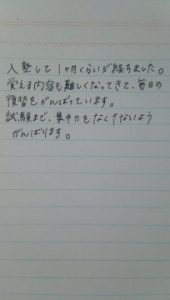 入塾して1ヶ月くらいが経ちました。
覚える内容も難しくなってきて、毎日の
復習をがんばっています。
試験まで、集中力をなくさないよう
がんばります。